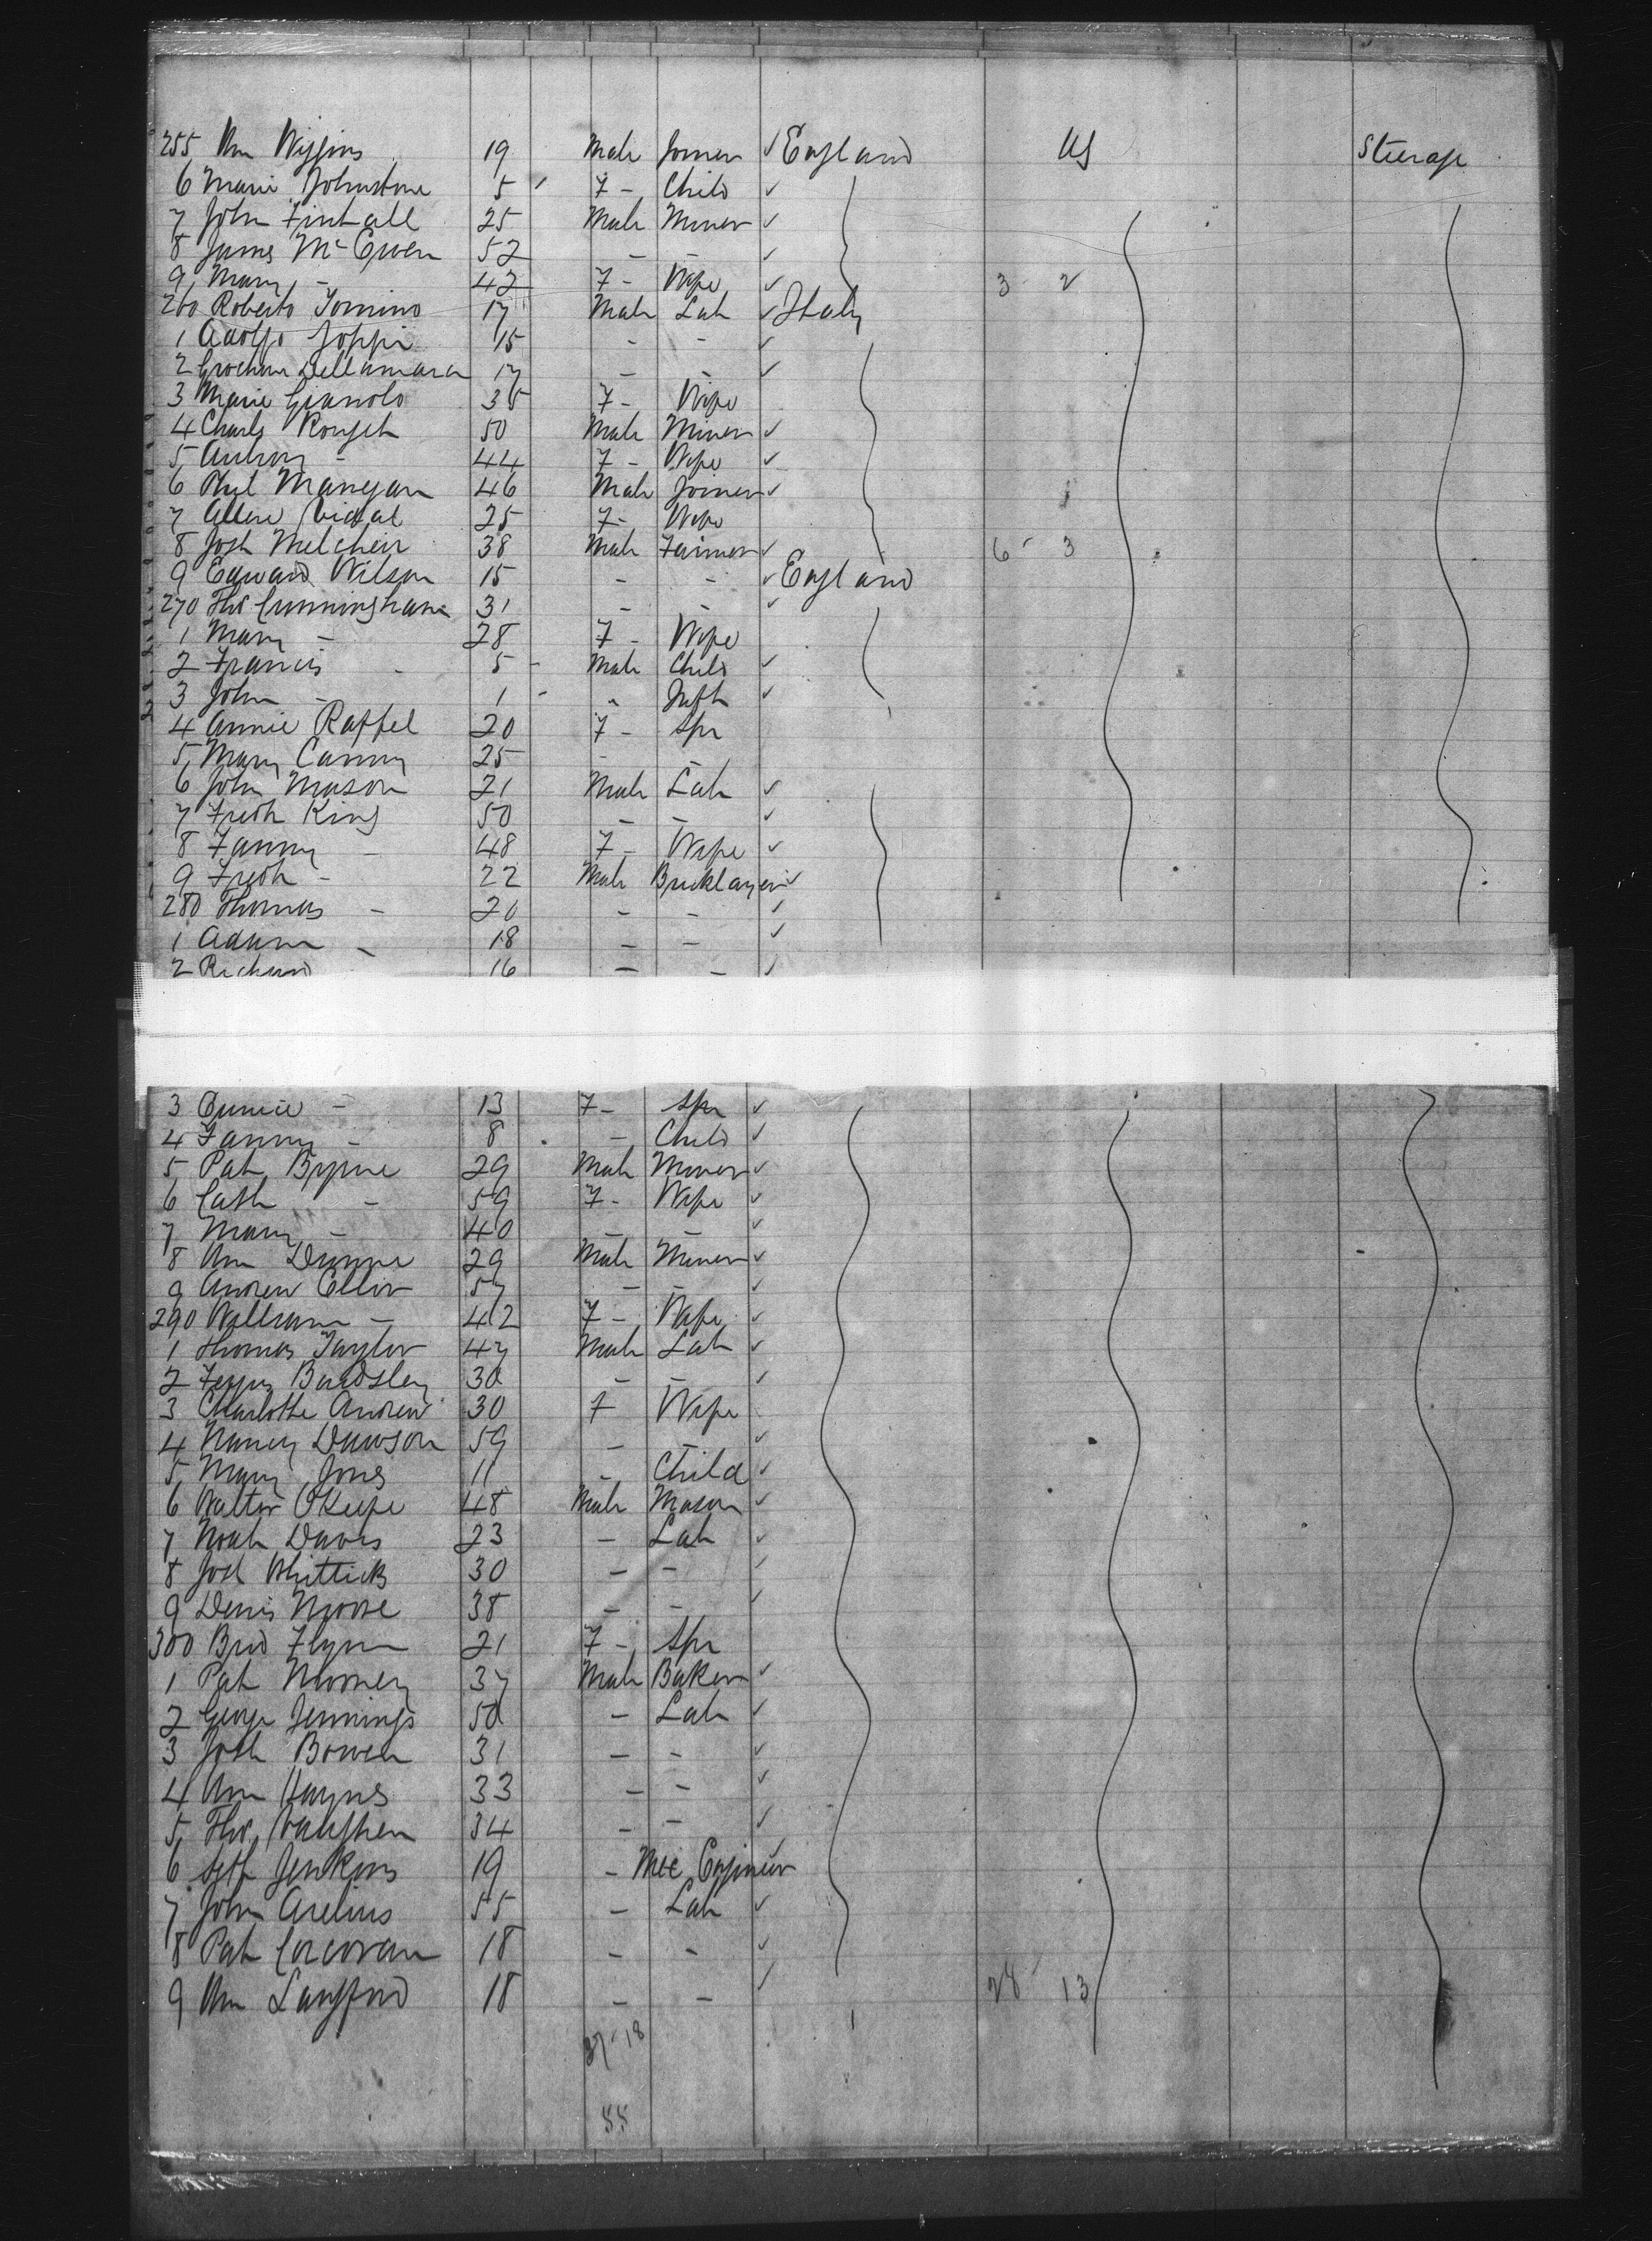 255 Wm Wiggins 19 Male Joiner ✓ England US Steerage
6 Marie Johnstone 5 7 - Child ✓
7 John Fintall 25 Male Miner ✓
8 James McEwen 52 - - ✓
9 Mary - 42 7 - Wife ✓ 3 - 2
260 Roberto Tomino 17 Male Lab ✓ Italy
1 Adolfo Joppi 15 - - ✓
2 Dellamara 17 - - ✓
3 Marie Gianolo 35 7 - Wife
4 Charls 50 Male Miner ✓
5 - 44 7 - Wife ✓
6 Phil Mangan 46 Male Joiner ✓
7 Vidal 25 7 - Wife
8 Josh Melcheir 38 Male Farmer ✓ 6 - 3
9 Edward Wilson 15 - - ✓ England
270 Ths Cunningham 31 - - ✓
1 Mary - 28 7 - Wife
2 Francis - 5 - Male Child ✓
3 John - 1 - " Inft ✓
4 Annie Raffel 20 7 - Spr
5 Mary Canny 25 - -
6 John Mason 21 Male Lab ✓
7 Fredk King 50 - - ✓
8 Fanny - 48 7 - Wife ✓
9 Fredk - 22 Male Bricklayer ✓
280 Thomas - 20 - - ✓
1 Adam - 18 - - ✓
2 Richard 16 - - ✓
3 Eunice - 13 7 - Spr ✓
4 Fanny - 8 - Child ✓
5 Pat Byrne 29 Male Miner ✓
6 Cath - 59 7 - Wife ✓
7 Mary - 40 - - ✓
8 Wm Dunne 29 Male Miner ✓
9 Andrew Ellor 57 - - ✓
290 William - 42 7 - Wife ✓
1 Thomas Taylor 47 Male Lab ✓
2 Bardsley 30 - - ✓
3 Charlotte Andrew 30 7 Wife
4 Nancy Dawson 59 - - ✓
5 Mary Jones 11 - Child ✓
6 Walter OKeefe 48 Male Mason ✓
7 Noah Davis 23 - Lab ✓
8 Josh Whitticks 30 - - ✓
9 Denis Moore 38 - - ✓
300 Brid Flynn 21 7 - Spr
1 Pat Mooney 37 Male Baker ✓
2 George Jennings 50 - Lab ✓
3 Josh Bowen 31 - - ✓
4 Wm Haynes 33 - - ✓
5 Ths Vaughen 34 - - ✓
6 Jenkins 19 - Mec Engineer ✓
7 John Arelius 55 - Lab ✓
8 Pat Corcoran 18 - - ✓
9 Wm Langford 18 - - ✓ 28 - 13
37 - 18
55